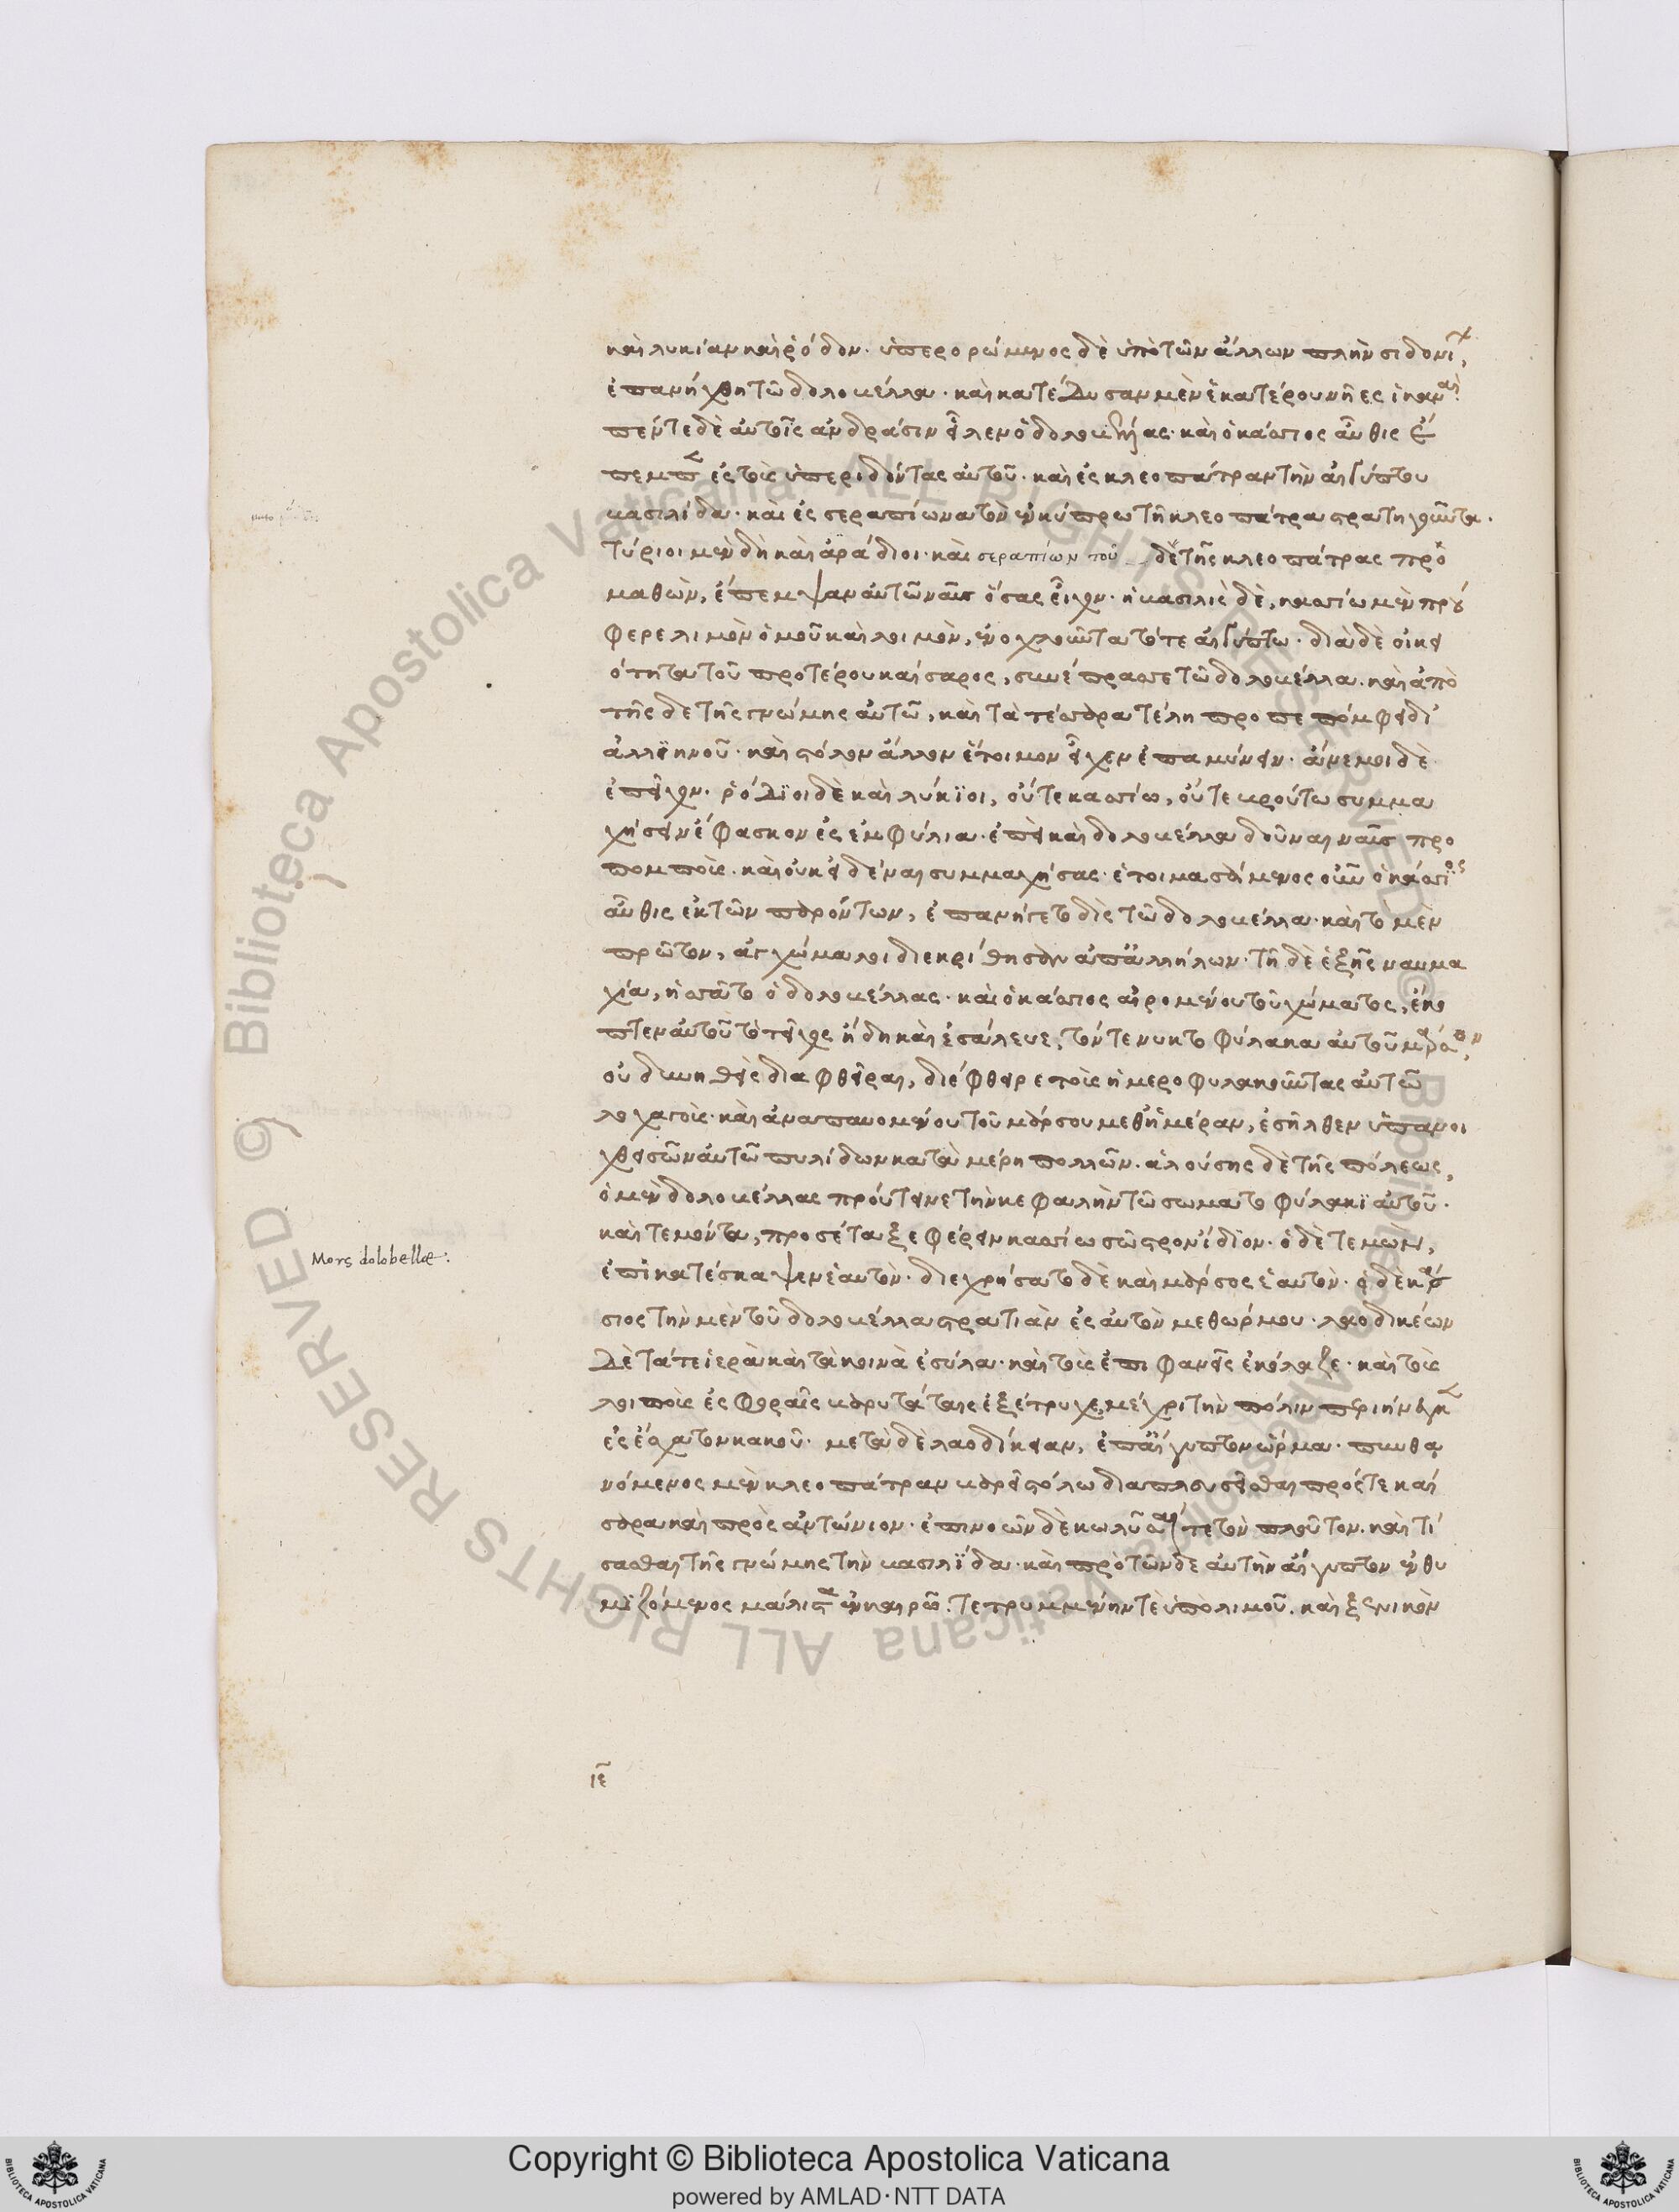 καὶ λυκίαν καὶ ῥόδον· ὑπερορώμενος δὲ ὑπὸ τῶν ἄλλων πλὴν σιδονί,
ἐπανήχθη τῶ δολοβέλλα· καὶ κατέδυσαν μὲν ἑκατέρου νῆες ἱκαναὶ.
πέντε δὲ αὐτοῖς ἀνδράσιν εἷλεν ὁ δολοβέλλας· καὶ ὁ κάσσιος αὖθις ἔ
πεμπ ἐς τοὺς ὑπεριδόντας αὐτοῦ· καὶ ἐς κλεοπάτραν τὴν αἰγύπτου
βασιλίδα· καὶ ἐς σεραπίωνα τὸν ἐν κύπρω τῆ κλεοπάτρα στρατηγοῦντα.
τύριοι μὲν δὴ καὶ ἀράδιοι· καὶ σεραπίων τοῦ _ δὲ τῆς κλεοπάτρας προ
μαθὼν, ἔπεμψαν αὐτῶ ναῦς ὅσας εἶχον· ἡ βασιλὶς δὲ, κασσίω μὲν πρού
φερε λιμὸν ὁμοῦ καὶ λοιμὸν, ἐνοχλοῦντα τότε αἰγύπτω· διὰ δὲ οἰκει
ότητα τοῦ προτέρου καίσαρος, συνέπρασσε τῶ δολοβέλλα· καὶ ἀπὸ
τῆς δε τῆς γνώμης αὐτῶ, καὶ τὰ τέσσαρα τέλη προπεπόμφει δι'
ἀλλϊηνοῦ· καὶ στόλον ἄλλον ἕτοιμον εἶχεν ἐπαμύνειν· ἄνεμοι δὲ
ἐπεῖχον· ῥόδϊοι δὲ καὶ λύκϊοι, οὔτε κασσίω, οὔτε βρούτω συμμα
χήσειν ἔφασκον ἐς ἐμφύλια· ἐπεὶ καὶ δολοβέλλα δοῦναι ναῦς προ
πομποὺς· καὶ οὐκ εἰδέναι συμμαχήσας· ἑτοιμασάμενος οὖν ὁ κάσσιος
αὖθις ἐκ τῶν παρόντων, ἐπανήγετο δὶς τῶ δολοβέλλα· καὶ τὸ μὲν
πρῶτον, ἀγχώμαλοι διεκρίθησαν ἀπ' ἀλλήλων· τῆ δὲ ἑξῆς ναυμα
χία, ἡσσᾶτο ὁ δολοβέλλας· καὶ ὁ κάσσιος αἰρομένου τοῦ χώματος, ἔκο
πτεν αὐτοῦ τὸ τεῖχος ἤδη καὶ ἐσάλευε, τόν τε νυκτοφύλακα αὐτοῦ μάρσον,
οὐ δυνηθεὶς διαφθεῖραι, διέφθειρε τοὺς ἡμεροφυλακοῦντας αὐτῶ
λοχαγοὺς· καὶ ἀναπαυομένου τοῦ μάρσου μεθ' ἡμέραν, ἐσῆλθεν ὑπανοι
χθεισῶν αὐτῶ πυλίδων κατὰ μέρη πολλῶν· ἁλούσης δὲ τῆς πόλεως,
ὁ μὲν δολοβέλλας προύτεινε τὴν κεφαλὴν τῶ σωματοφύλακϊ αὐτοῦ·
καὶ τεμόντα, προσέταξε φέρειν κασσίω σῶστρον ἴδϊον· ὁ δὲ τεμὼν,
ἐπικατέσκαψεν ἑαυτὸν· διεχρήσατο δὲ καὶ μάρσος ἑαυτὸν· ὁ δὲ κάσ
σιος τὴν μὲν τοῦ δολοβέλλα στρατιὰν ἐς αὑτὸν μεθώρμου· λαοδικέων
δὲ τά τε ἱερὰ καὶ τὰ κοινὰ ἐσύλα· καὶ τοὺς ἐπιφανεῖς ἐκόλαζε· καὶ τοὺς
λοιποὺς ἐσφοραῖς βαρυτάταις ἐξέτρυχε, μέχρι τὴν πόλιν περιήνεγκ
ἐς ἔσχατον κακοῦ· μετὰ δὲ λαοδίκειαν, ἐπ' αἴγυπτον ὥρμα· πυνθα
νόμενος μὲν κλεοπάτραν βαρεῖ στόλω διαπλευσεῖσθαι πρός τε καί
σαρα καὶ πρὸς ἀντώνιον· ἐπινοῶν δὲ κωλῦσαί τε τὸν πλοῦτον· καὶ τί
σασθαι τῆς γνώμης τὴν βασιλΐδα· καὶ πρὸ τῶνδε αὐτὴν αἴγυπτον ἐνθυ
μϊζόμενος μάλιστα ἐν καιρῶ. τετρυμμένην τε ὑπὸ λιμοῦ. καὶ ξενικὸν
Mors dolobellæ.
ιε
Copyright © Biblioteca Apostolica Vaticana
powered by AMLAD·NTT DATA
© Biblioteca Apostolica Vaticana ALL RIGHTS RESERVED
© Biblioteca Apostolica Vaticana ALL RIGHTS RESERVED
BIBLIOTECA APOSTOLICA VATICANA
BIBLIOTECA APOSTOLICA VATICANA